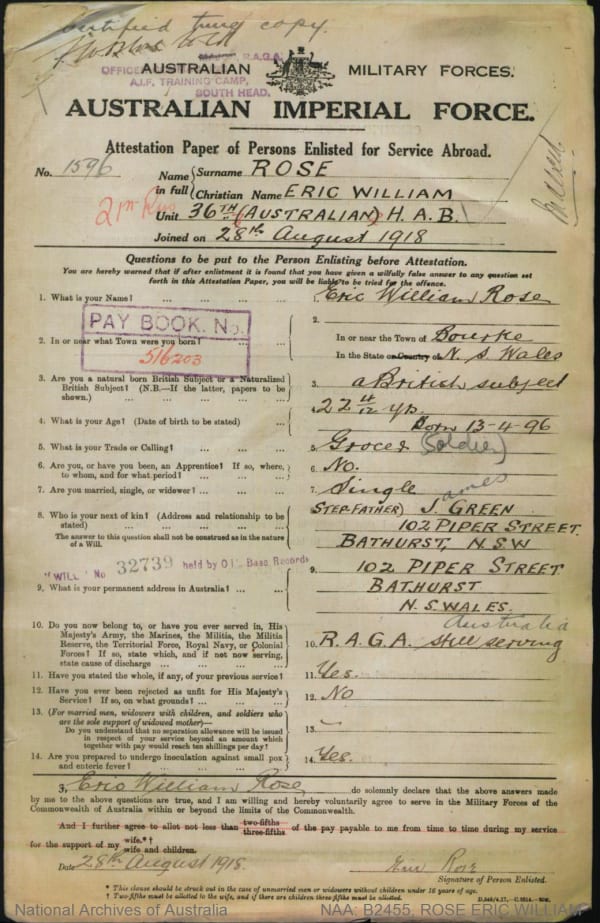 Certified true copy.
MAJOR, R.A.G.A.
OFFICE
A.I.F. TRAINING CAMP,
SOUTH HEAD.
AUSTRALIAN MILITARY FORCES.
AUSTRALIAN IMPERIAL FORCE.
Attestation Paper of Persons Enlisted for Service Abroad.
No. 1596 Name in full Surname ROSE
Christian Name ERIC WILLIAM
Unit 36TH (AUSTRALIAN) H.A.B.
Joined on 28th August 1918
Questions to be put to the Person Enlisting before Attestation.
You are hereby warned that if after enlistment it is found that you have given a wilfully false answer to any question set
forth in this Attestation Paper, you will be liable to be tried for the offence.
1. What is your Name? ... ... ... ... Eric William Rose
PAY BOOK. No.
516203
2. In or near what Town were you born? 2. In or near the Town of Bourke
In the State or Country of N. S. Wales
3. Are you a natural born British Subject or a Naturalized
British Subject? (N.B.—If the latter, papers to be
shown.) ... ... ... 3. a British subject
4. What is your Age? (Date of birth to be stated) ... 4. 22 4/12 yrs.
Born 13-4-96
5. What is your Trade or Calling? ... ... ... 5. Grocer (Soldier)
6. Are you, or have you been, an Apprentice? If so, where,
to whom, and for what period? ... ... 6. No.
7. Are you married, single, or widower? ... ... 7. Single
8. Who is your next of kin? (Address and relationship to be
stated) ... ... ...
The answer to this question shall not be construed as in the nature
of a Will.
STEP-FATHER) J. ames GREEN
102 PIPER STREET.
BATHURST, N.S.W
"WILL" No 32739 held by O i/c Base Records
9. What is your permanent address in Australia? ... ... 9. 102 PIPER STREET
BATHURST
N.S.WALES.
Australia
10. Do you now belong to, or have you ever served in, His
Majesty's Army, the Marines, the Militia, the Militia
Reserve, the Territorial Force, Royal Navy, or Colonial
Forces? If so, state which, and if not now serving,
state cause of discharge ... ... ... 10. R.A.G.A. still serving
11. Have you stated the whole, if any, of your previous service? 11. Yes.
12. Have you ever been rejected as unfit for His Majesty's
Service? If so, on what grounds? ... ... 12. No
13. (For married men, widowers with children, and soldiers who
are the sole support of widowed mother)—
Do you understand that no separation allowance will be issued
in respect of your service beyond an amount which
together with pay would reach ten shillings per day? 13. —
14. Are you prepared to undergo inoculation against small pox
and enteric fever? ... ... ... 14. Yes.
I, Eric William Rose do solemnly declare that the above answers made
by me to the above questions are true, and I am willing and hereby voluntarily agree to serve in the Military Forces of the
Commonwealth of Australia within or beyond the limits of the Commonwealth.
And I further agree to allot not less than two-fifths three-fifths of the pay payable to me from time to time during my service
for the support of my wife.*† wife and children.
Date 28th August 1918. Eric Rose
Signature of Person Enlisted.
* This clause should be struck out in the case of unmarried men or widowers without children under 16 years of age.
† Two-fifths must be allotted to the wife, and if there are children three-fifths must be allotted.
National Archives of Australia NAA: B2455, ROSE ERIC WILLIAM